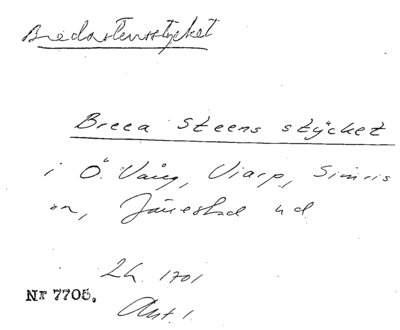 Bredastensstycket
Breea Steens stÿcket
i Ö. Vång, Viarp, Simris
sn, Järrestad hd
Lh. 1701
Nr 7705.
Akt. 1.